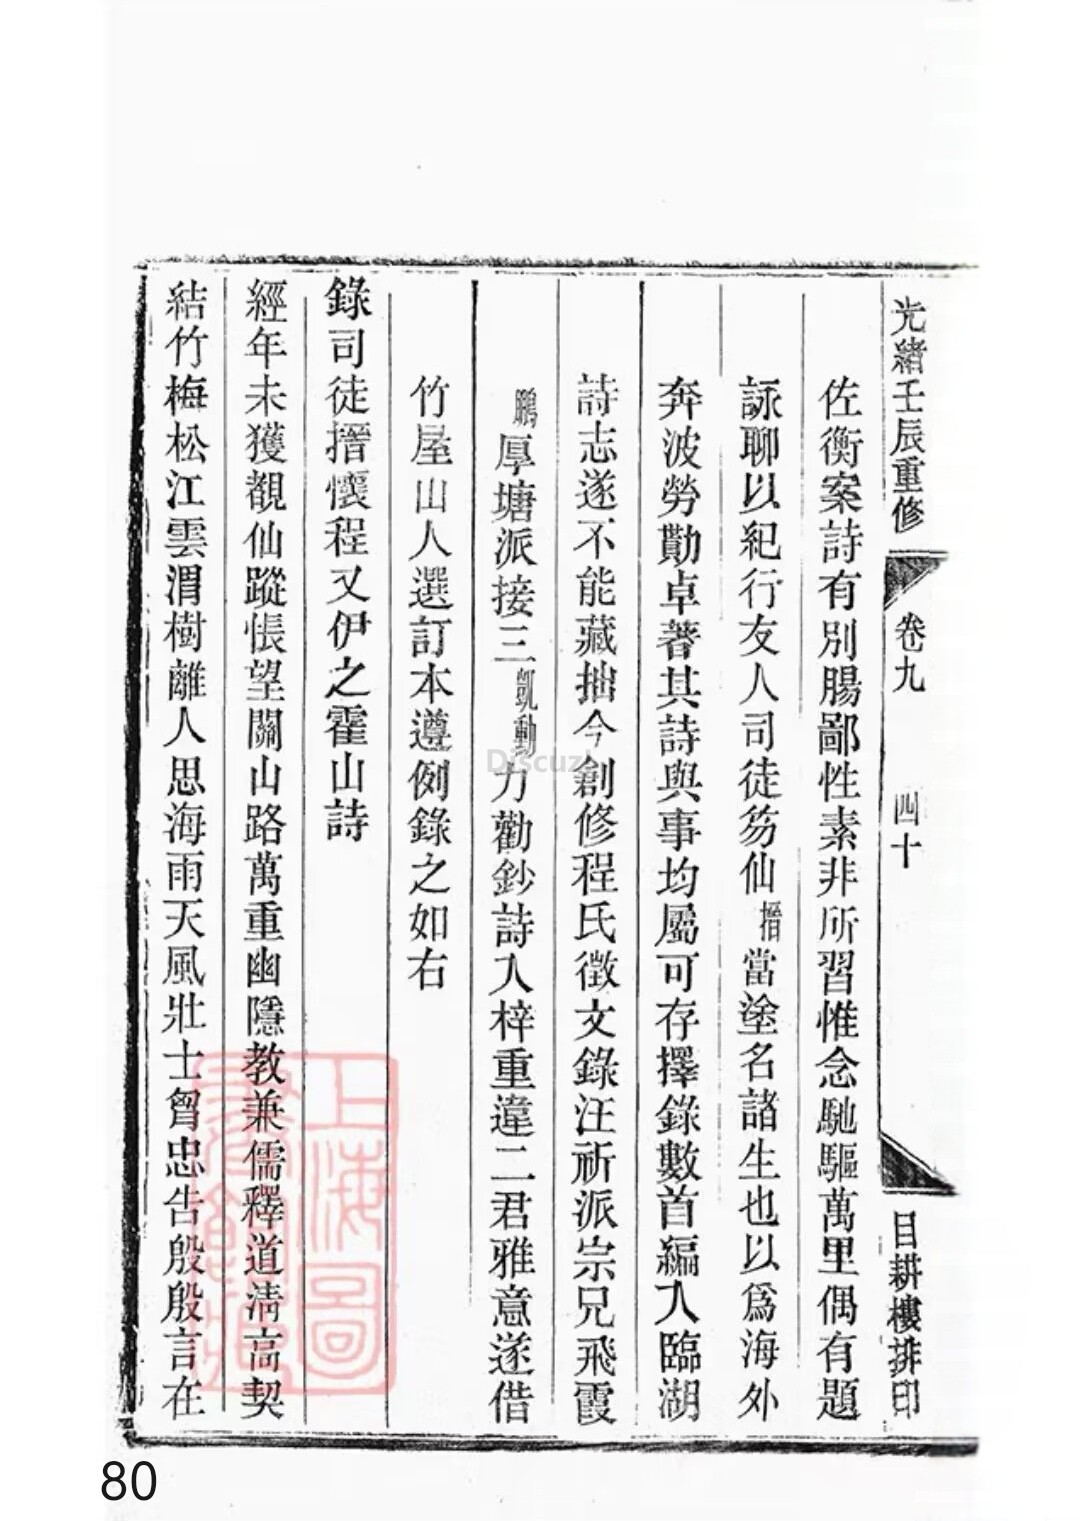 光緒壬辰重修 卷九 四十 目耕樓排印
佐衡案詩有別腸鄙性素非所習惟念馳驅萬里偶有題
詠聊以紀行友人司徒笏仙搢當塗名諸生也以爲海外
奔波勞勩卓著其詩與事均屬可存擇錄數首編入臨湖
詩志遂不能藏拙今創修程氏徵文錄汪祈派宗兄飛霞
鵬厚塘派接三凱動力勸鈔詩入梓重違二君雅意遂借
竹屋山人選訂本遵例錄之如右
錄司徒搢懷程又伊之霍山詩
經年未獲覩仙蹤悵望關山路萬重幽隱教兼儒釋道清高契
結竹梅松江雲渭樹離人思海雨天風壯士胷忠告殷殷言在
上海圖
書館藏
Discuz!
80